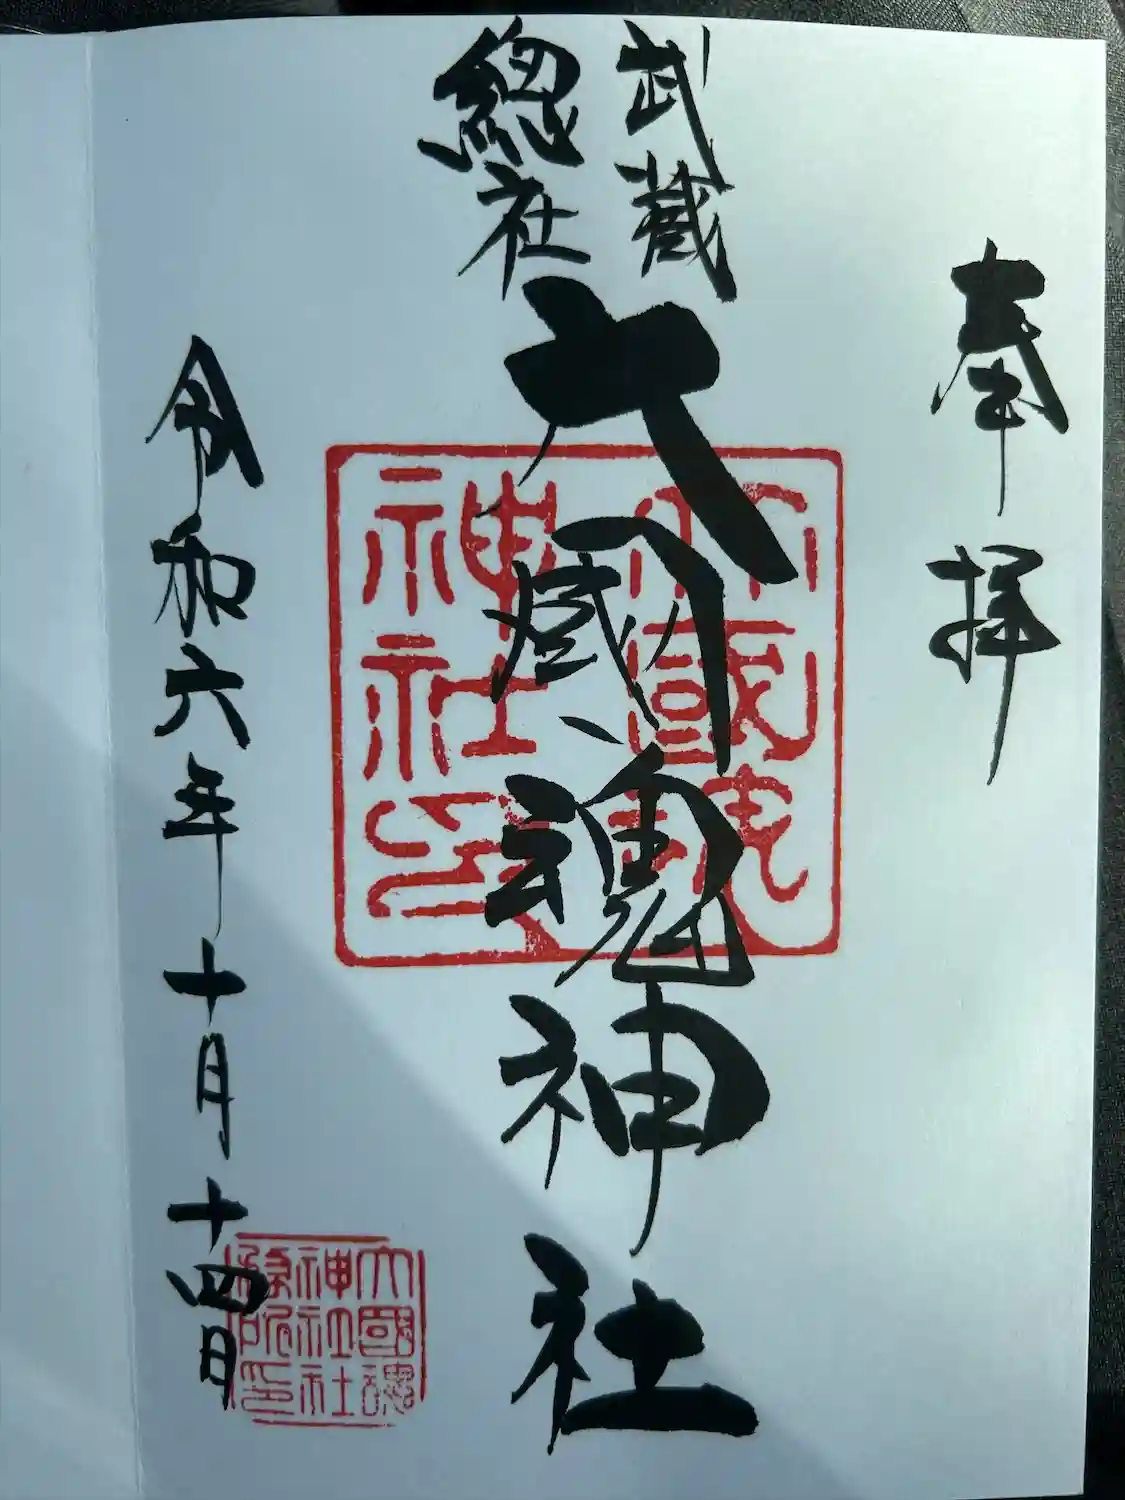 奉拝
武蔵
總社
大國魂神社
令和六年十月十四日
大國魂
神社印
大國魂
神社社
務所印